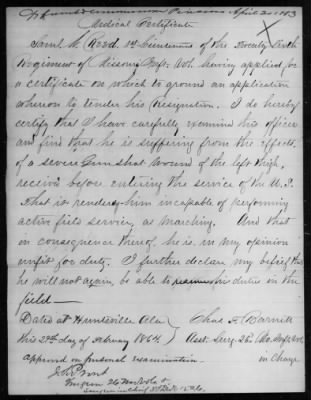 April 20 1883
Medical Certificate
Saml M. Reed 1st Lieutenant of the Twenty Sixth
Regiment of Missouri Infty. Vol. having applied for
a certificate on which to ground an application
whereon to tender his Resignation. I do hereby
certify that I have carefully examined this officer
and find that he is suffering from the effects
of a severe Gunshot wound of the left thigh,
received before entering the service of the U.S.
That it renders him incapable of performing
active field service, as marching. And that
in consequence thereof, he is in my opinion
unfit for duty. I further declare my belief that
he will not again be able to resume his duties in the
field
Dated at Huntsville Ala
this 29th day of February 1864
Chas F. Barnett
Asst. Surg. 26th Mo. Infty Vol
in Charge
approved on personal examination
Surgeon